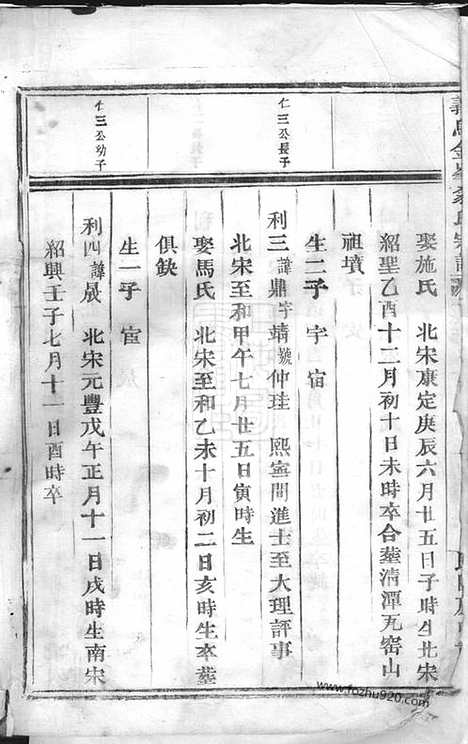 娶施氏 北宋康定庚辰六月廿五日子時生北宋
紹聖乙酉十二月初十日未時卒合塟清潭瓦窑山
祖墳
生二子 宇 宿
仁三公長子
利三諱鼎字靖號仲珪 熙寧間進士至大理評事
北宋至和甲午七月廿五日寅時生
娶馬氏 北宋至和乙未十月初二日亥時生卒塟
俱缺
生一子 宦
仁三公幼子
利四諱晟 北宋元豐戊午正月十一日戌時生南宋
紹興壬子七月十一日酉時卒
www.fozhu920.com